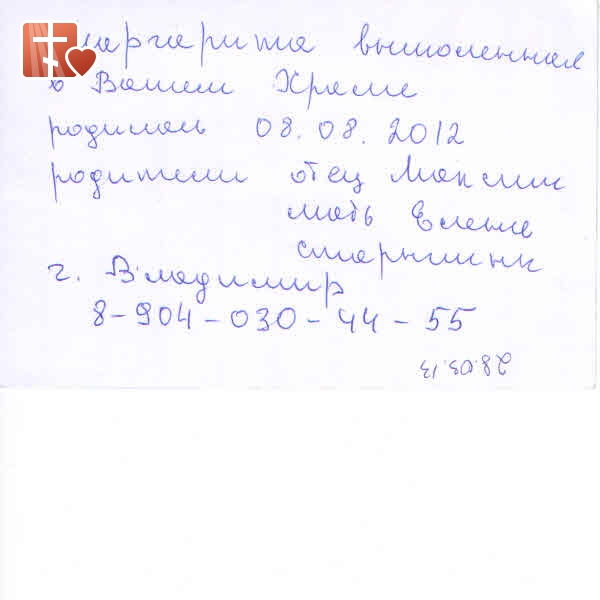 Маргарита вымоленная
в Вашем Храме
родилась 08.08.2012
родители отец Максим
мать Елена
г. Владимир
8-904-030-44-55
28.03.13